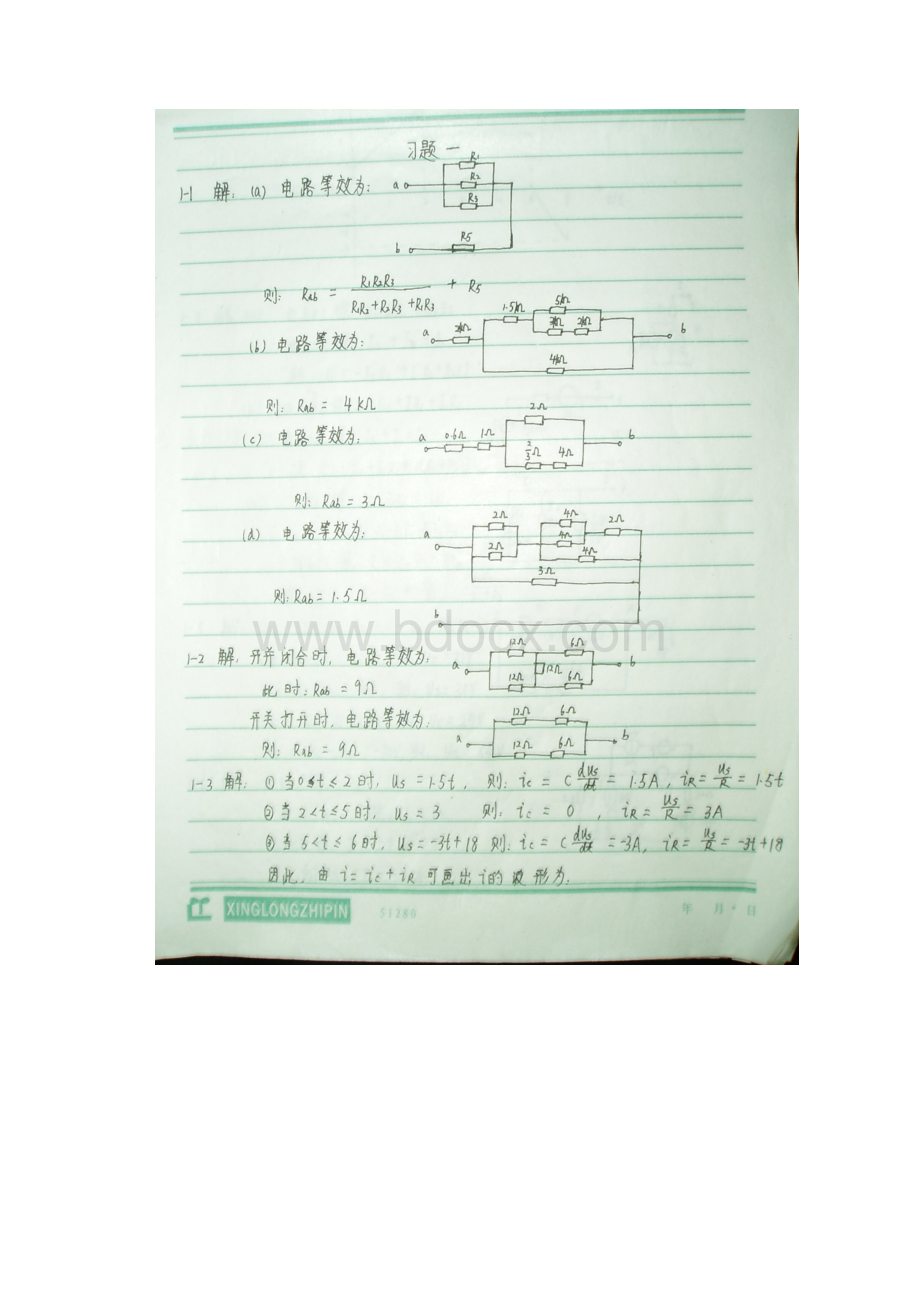 习题一
1-1 解: (a) 电路等效为:
a R1 R2 R3
b R5
则: Rab = R1R2R3 / (R1R2+R2R3+R1R3) + R5
(b) 电路等效为:
a 2kΩ 1.5kΩ 5kΩ 2kΩ 4kΩ b
则: Rab = 4kΩ
(c) 电路等效为:
a 0.6Ω 1Ω 2Ω 2/3Ω 4Ω b
则: Rab = 3Ω
(d) 电路等效为:
a 2Ω 2Ω 4Ω 4Ω 2Ω 4Ω 3Ω
b
则: Rab = 1.5Ω
www.bdocx.com
1-2 解: 开关闭合时, 电路等效为:
a 12Ω 6Ω 12Ω 12Ω 6Ω b
此时: Rab = 9Ω
开关打开时, 电路等效为:
a 12Ω 6Ω 12Ω 6Ω b
则: Rab = 9Ω
1-3 解: ① 当0≤t≤2时, us = 1.5t, 则: ic = C dus/dt = 1.5A, iR = us/R = 1.5t
② 当2<t≤5时, us = 3 则: ic = 0, iR = us/R = 3A
③ 当5<t≤6时, us = -3t+18 则: ic = C dus/dt = -3A, iR = us/R = -3t+18
因此, 由 i = ic + iR 可画出i的波形为:
XINGLONGZHIPIN 51286 年 月 日